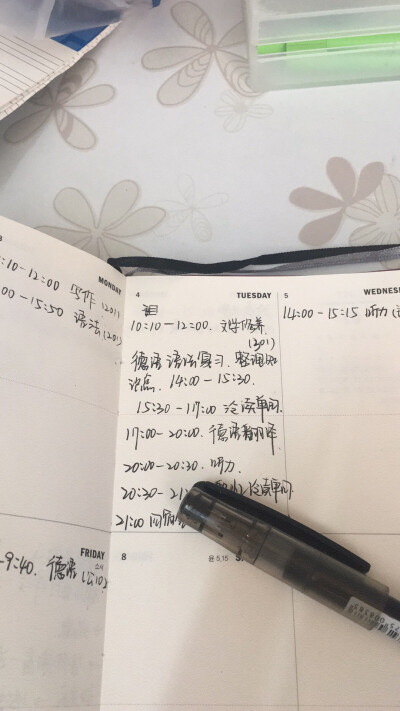 MONDAY
:10-12:00 写作 (201)
:00-15:50 语法 (201)
4
TUESDAY
10:10-12:00. 文学修养
(201)
德语语法复习. 整理知
识点. 14:00-15:30.
15:30-17:00 泛读单词.
17:00-20:00. 德语翻译
20:00-20:30. 听力.
20:30-21 泛读单词.
21:00
5
WEDNES
14:00-15:15 听力
FRIDAY
-9:40. 德语
8
음 5.15